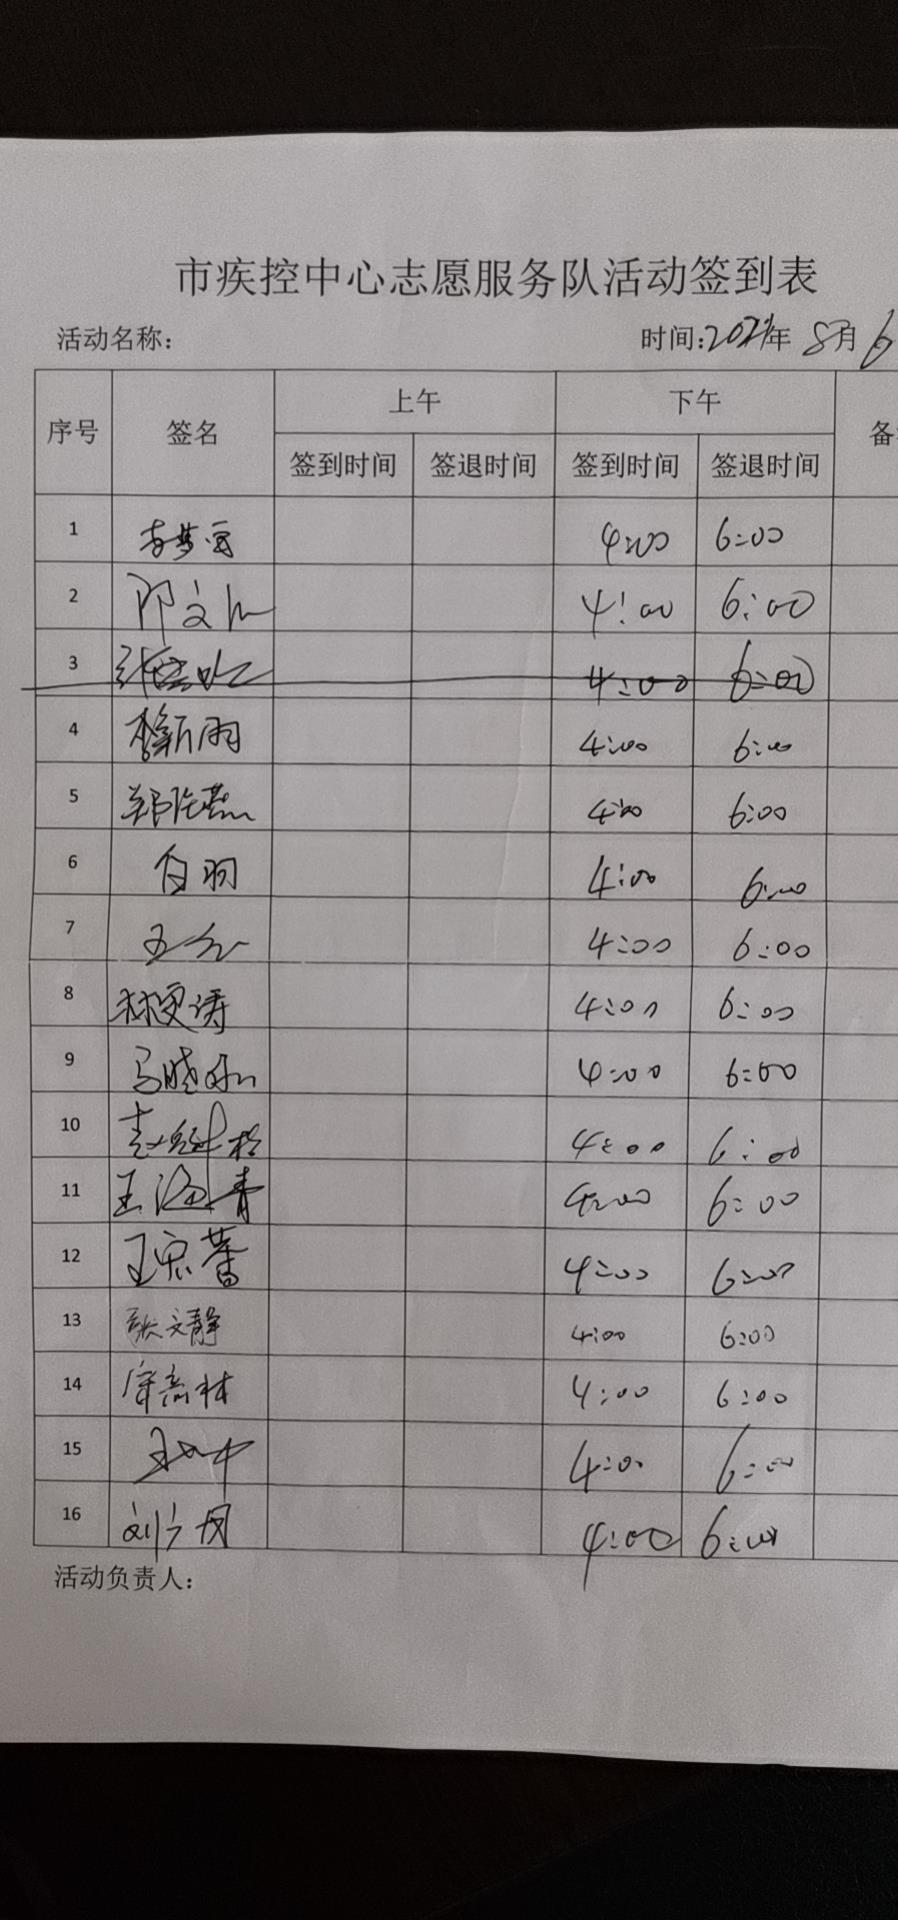 市疾控中心志愿服务队活动签到表
活动名称: 时间:2024年 8月 6
序号 签名 上午 下午 备
签到时间 签退时间 签到时间 签退时间
1 4:00 6:00
2 4:00 6:00
3 4:00 6:00
4 4:00 6:00
5 4:00 6:00
6 白羽 4:00 6:00
7 4:00 6:00
8 林更涛 4:00 6:00
9 4:00 6:00
10 4:00 6:00
11 王海青 4:00 6:00
12 4:00 6:00
13 张文静 4:00 6:00
14 4:00 6:00
15 4:00 6:00
16 4:00 6:00
活动负责人: